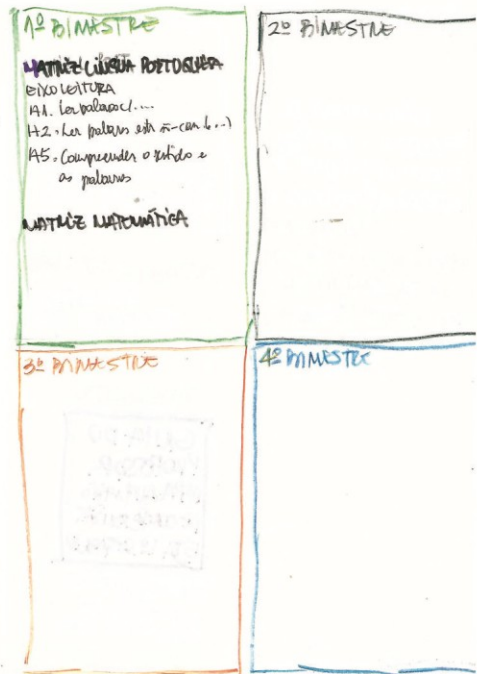 1º BIMESTRE
MATRIZ LÍNGUA PORTUGUESA
EIXO LEITURA
H1. Ler palavras c/....
H2. Ler palavras estr ñ-can (...)
H5. Compreender o sentido e
as palavras
MATRIZ MATEMÁTICA
2º BIMESTRE
3º BIMESTRE
4º BIMESTRE